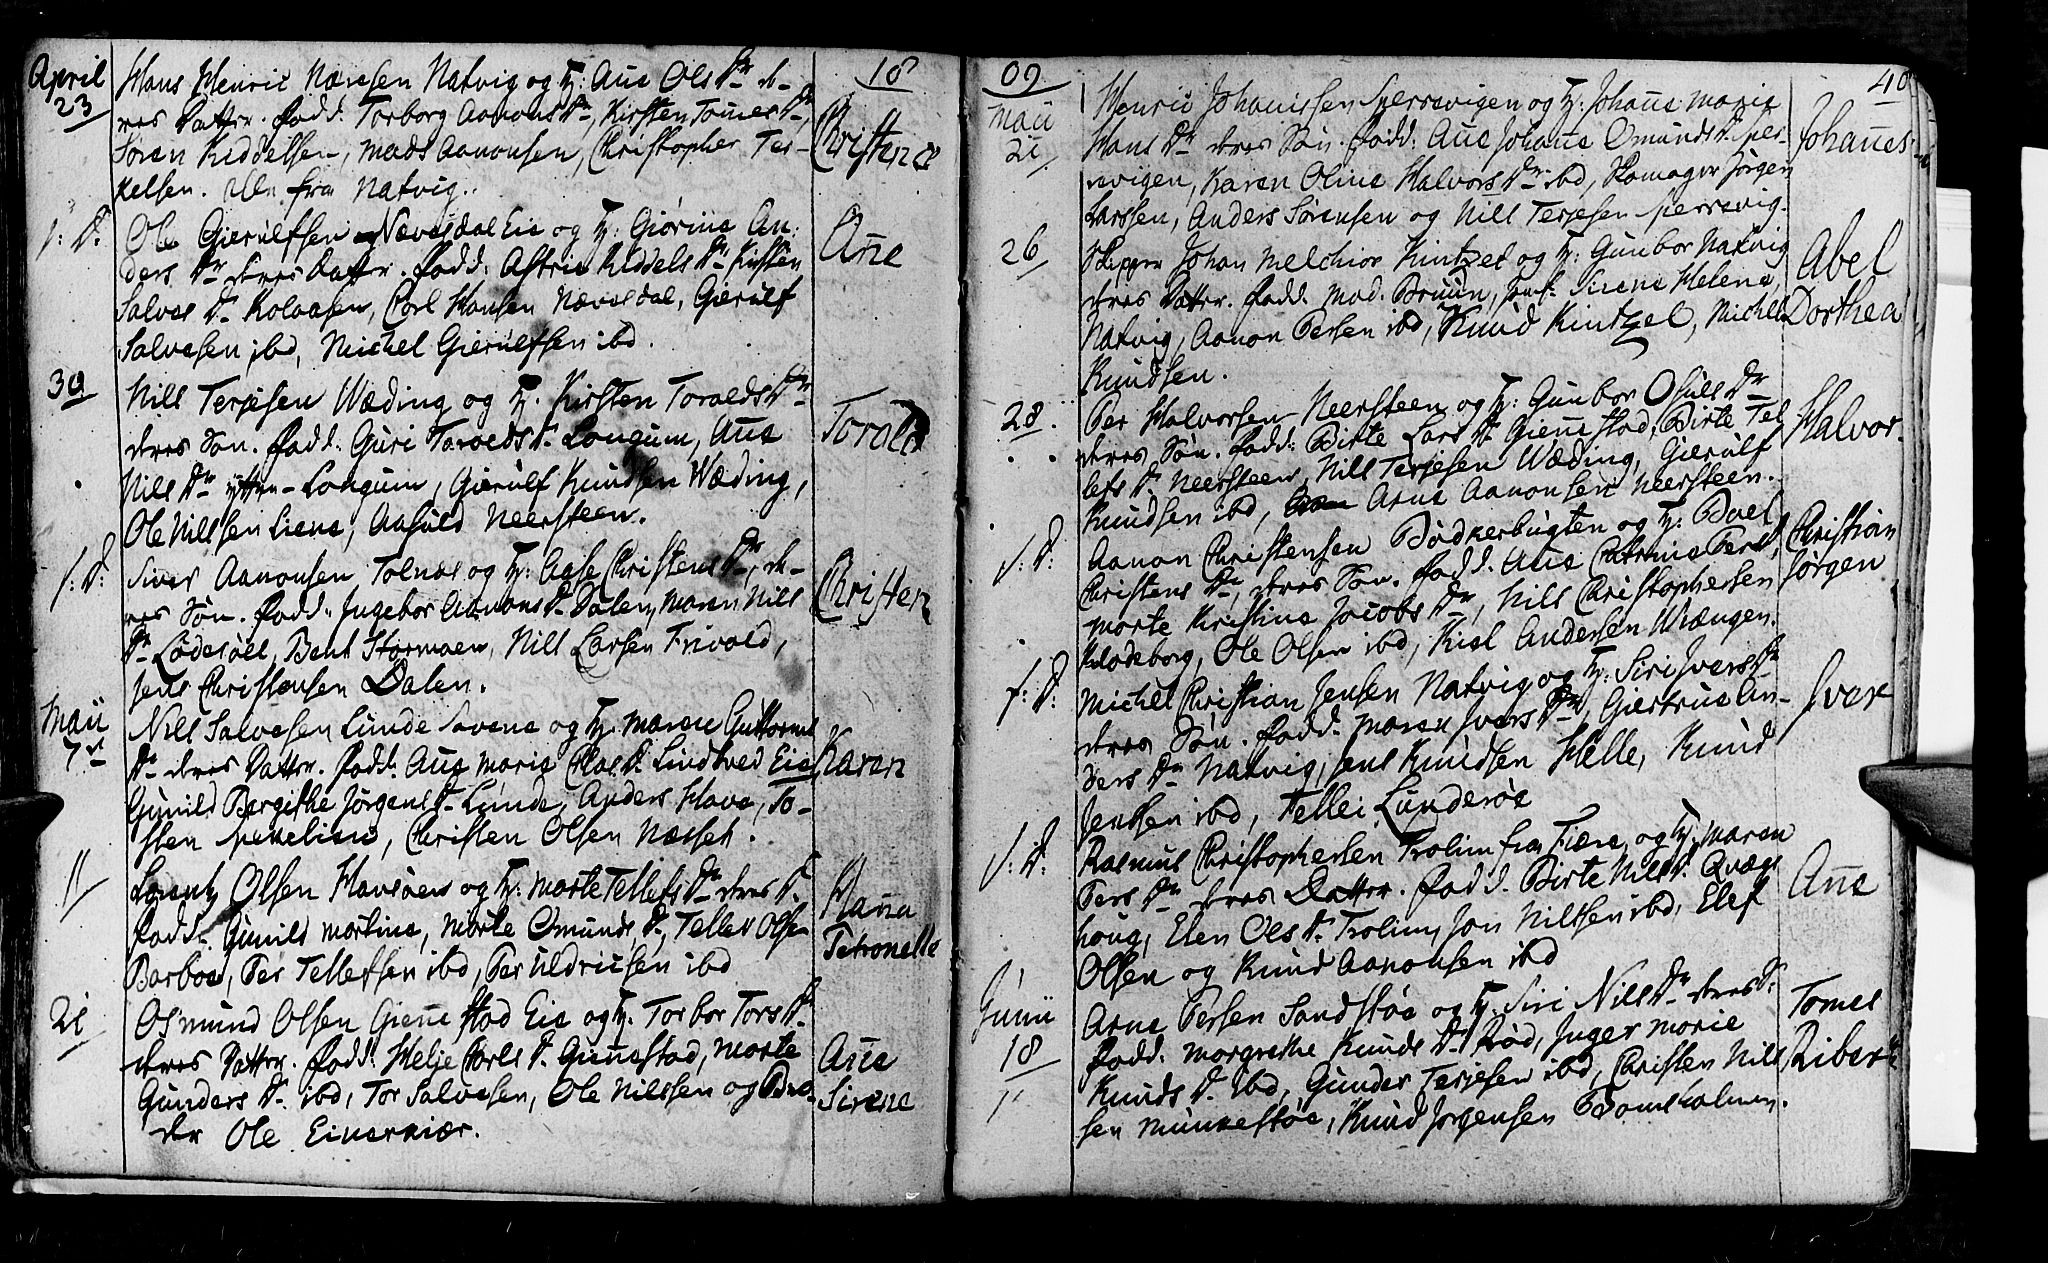 April
23
18
Hans Henric Nærisen Natvig og H: Ane Ols Dr de-
res Dattr. fadd. Torborg Aanons Dr, Kirsten Tomes Dr,
Søren Kiddelsen, Mads Aanonsen, Christopher Ter-
kelsen. alle fra Natvig.
Christence
s: D.
Ole Gierulfsen Næveldal Eie og H: Giørine An-
ders Dr deres Dattr. fadd: Astrie Kiddels Dr Kirsten
Salves Dr Kolaasen, Carl Hansen Næveldal, Gierulf
Salvesen ibd, Michel Gierulfsen ibd.
Ane
30
Nill Terjesen Wæding og H. Kirsten Torolds Dr
deres Søn. fadd: Guri Torolds Dr Longum, Ane
Nills Dr yttre-Longum, Gierulf Knudsen Wæding,
Ole Nillsen Liene, Aasuld Neersteen.
Torold
s: D:
Siver Aanonsen Tolnæs og H: Aase Christens Dr, de-
res Søn. fadd: Ingebor Aanons Dr Dalen, Maren Nills
Dr Lødesøel, Bent Stormoen, Nill Larsen Frivold,
Jens Christensen Dalen.
Christen
Maii
7de
Nill Salvesen Lunde Savene og H: Maren Guttorms
Dr deres Dattr. fadd: Ane Marie Clas Dr Lindtved Eie
Gunild Bergithe Jørgens Dr Lunde, Anders Have, To-
sten , Christen Olsen Næsset.
Karen
11
Lorentz Olsen Havsøen og H: Marte Tellefs Dr deres D.
fadd. Gunild Martine, Marte Omunds Dr, Tellef Olsen
Barboe, Per Tellefsen ibd, Per Uldricsen ibd
Hana
Petronelle
21
Osmund Olsen Gienestad Eie og H. Torbor Tors Dr
deres Dattr. fadd: Helje Carls Dr Gienestad, Marte
Gunders Dr ibd, Tor Salvesen, Ole Nilssen og
der Ole Eiverkiær.
Ane
Sirene
09
40
Maii
21
Henric Johanissen Sperrevigen og H: Johane Marie
Hans Dr deres Søn. fadd: Ane Johane Omunds Dr Sper-
revigen, Karen Oline Halvors Dr ibd, Jørgen
Larssen, Anders Sørensen og Nill Terjesen Sperrevig.
Johanes
26
Skipper Johan Melchior Kintzel og H: Gunbor Natvig
deres Dattr. fadd: Mad. Bruun, Jomf: Sirene Helene
Natvig, Aanon Persen ibd, Knud Kintzel, Michel
Knudsen.
Abel
Dorthea
28.
Per Halvorsen Neersteen og H: Gunbor Osulls Dr
deres Søn. fadd: Birte Lars Dr Gienestad, Birte Tel-
lefs Dr Neersteen, Nill Terjesen Wæding, Gierulf
Knudsen ibd, Arne Aanonsen Neersteen.
Halvor.
s: D.
Aanon Christensen Bødkerbugten og H: Boel
Christens Dr, deres Søn. fadd. Ane Catrine Pers Dr
Marte Kristine Jacobs Dr, Nill Christophersen
Kalodeborg, Ole Olsen ibd, Kiel Andersen Wrængen.
Christian
Jørgen
s: D:
Michel Christian Jensen Natvig og H: Siri Ivers Dr
deres Søn. fadd. Maren Ivers Dr, Giertrue An-
ders Dr Natvig, Jens Knudsen Helle, Knud
Jensen ibd, Tellef Lunderøe
Iver
s: D.
Rasmus Christophersen Trolim fra Fiære og H: Maren
Pers Dr deres Dattr. fadd. Birte Nils Dr Qvags-
houg, Elen Ols Dr Trolim, Jon Nilssen ibd, Elef
Olsen og Knud Aanonsen ibd
Ane
Junii
18
Arne Persen Sandstøe og H: Siri Nils Dr deres D.
fadd. Margrethe Knuds Dr Rød, Inger Marie
Knuds Dr ibd, Gunder Terjesen ibd, Christen Nils-
sen Munkestøe, Knud Jørgensen Tromsholmen.
Tomes